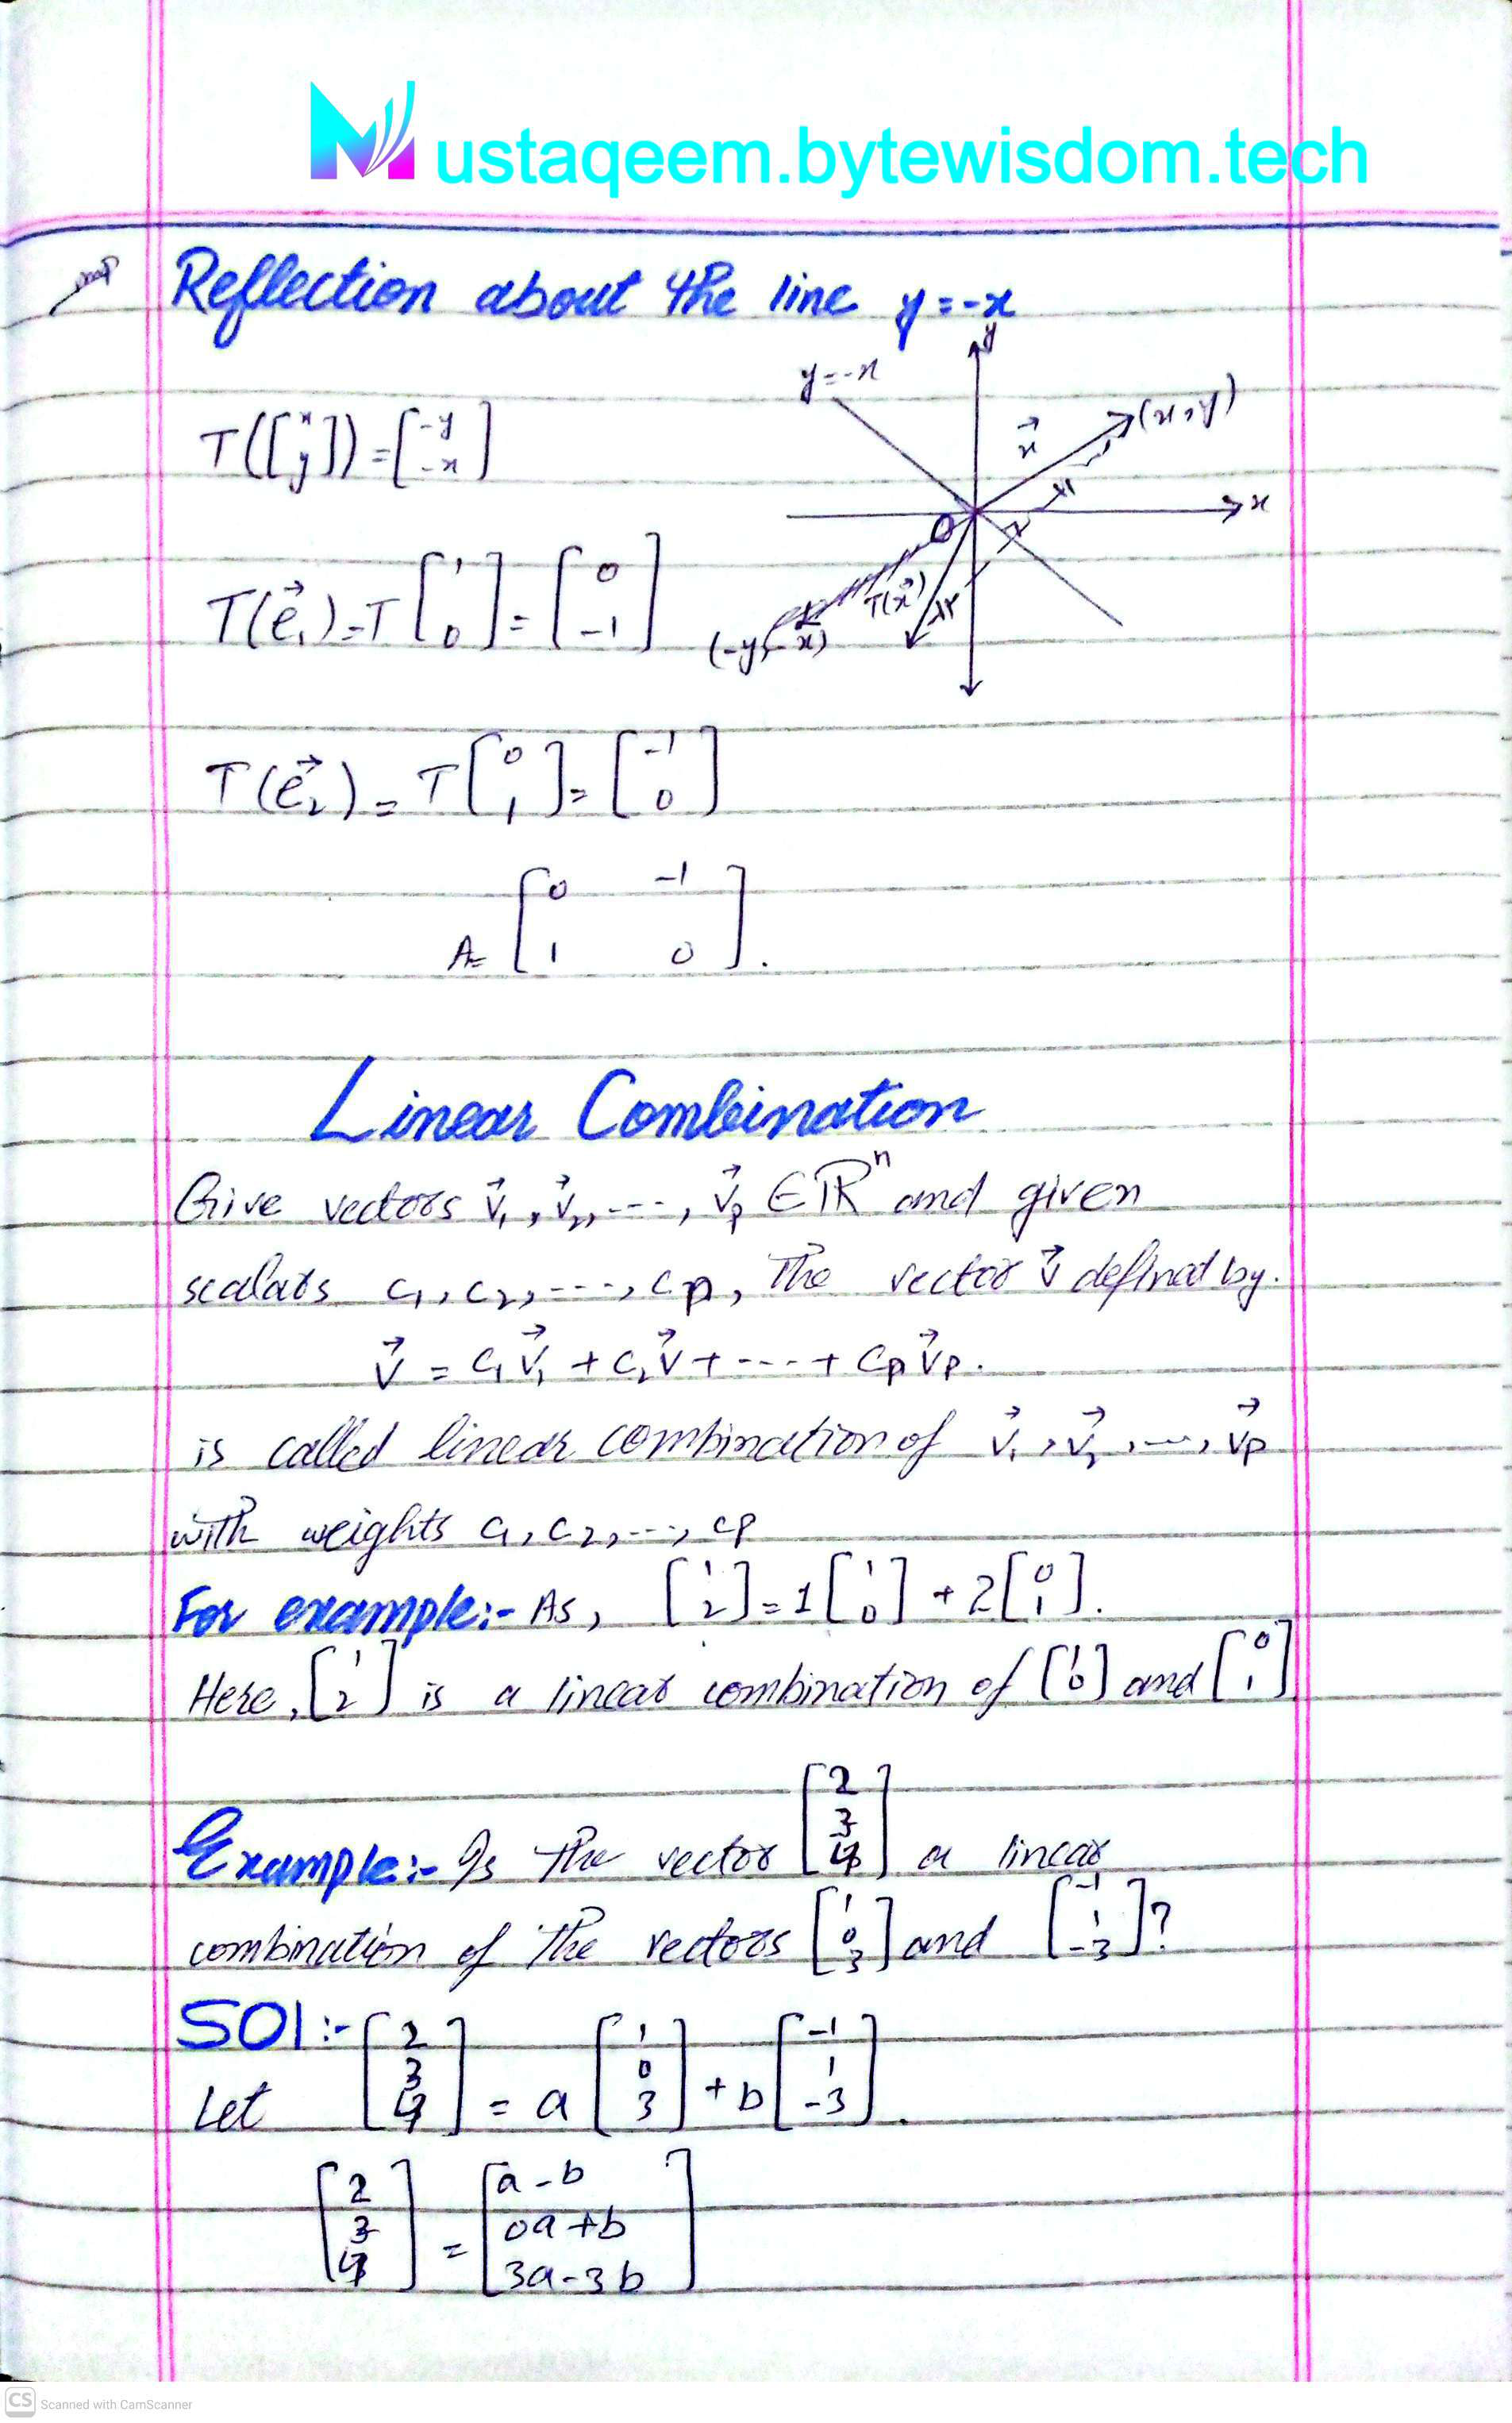 Mustaqeem.bytewisdom.tech
Reflection about the line y=-x
y
y=-x
(x,y)
T([x y]) = [-y -x]
x
x
T(e₁)=T[1 0]=[0 -1]
T(x)
(-y,-x)
T(e₂)=T[0 1]=[-1 0]
A=[0 -1
1 0].
Linear Combination
Give vectors v₁, v₂, ---, vp ∈ ℝⁿ and given
scalars c₁, c₂, ---, cp, The vector v defined by.
v = c₁v₁ + c₂v + --- + cpvp.
is called linear combination of v₁, v₂, ---, vp
with weights c₁, c₂, ---, cp
For example:- As, [1 2]=1[1 0]+2[0 1].
Here, [1 2] is a linear combination of [1 0] and [0 1]
Example:- Is the vector [2 3 4] a linear
combination of the vectors [1 0 3] and [-1 1 -3]?
SOl:-
Let [2 3 4] = a[1 0 3] + b[-1 1 -3].
[2 3 4] = [a-b 0a+b 3a-3b]
CS Scanned with CamScanner